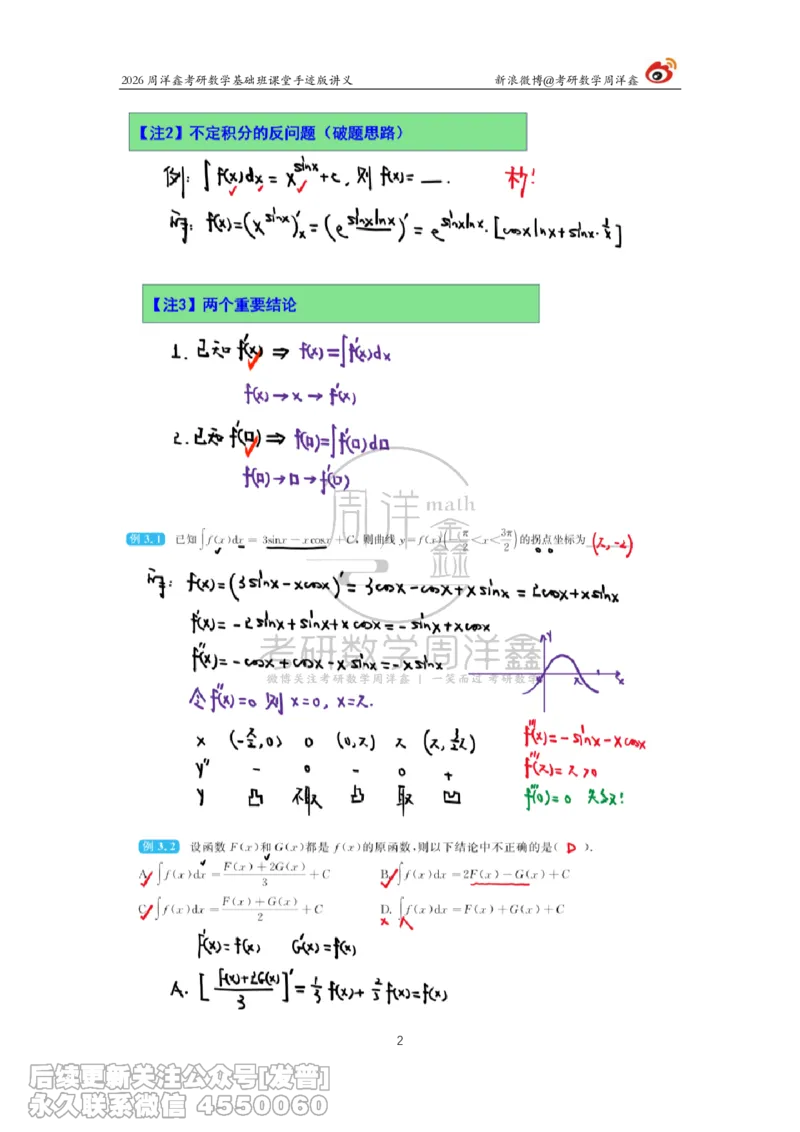 2026 周洋鑫考研数学基础班课堂手迹版讲义 新浪微博@考研数学周洋鑫
【注2】不定积分的反问题（破题思路）
例: ∫f(x)dx = x^{sinx}+c, 则 f(x)= __. 秒!
解: f(x)=(x^{sinx})'_x=(e^{sinxlnx})' = e^{sinxlnx}·[cosxlnx+sinx·1/x]
【注3】两个重要结论
1. 已知f'(x) ⇒ f(x)=∫f'(x)dx
f(x)→x→f'(x)
2. 已知f'(口)⇒ f(口)=∫f'(口)d口
f(口)→口→f'(口)
周洋鑫 math
例 3.1 已知∫f(x)dx = 3sinx－xcosx+C, 则曲线 y=f(x)(－π/2<x<3π/2)的拐点坐标为 (π,-2)
解: f(x)=(3sinx-xcosx)'=3cosx-cosx+xsinx=2cosx+xsinx
f'(x)=-2sinx+sinx+xcosx=-sinx+xcosx
考研数学周洋鑫
f''(x)=-cosx+cosx-xsinx=-xsinx
y π x
微博关注考研数学周洋鑫 | 一笑而过 考研数学
令f''(x)=0 则 x=0, x=π.
x (-π/2,0) 0 (0,π) π (π,3/2π) f'''(x)=-sinx-xcosx
y'' - 0 - 0 + f'''(π)=π>0
y 凸 不取 凸 取 凹 f'''(0)=0 失效!
例 3.2 设函数 F(x)和G(x)都是 f(x)的原函数,则以下结论中不正确的是( D ).
A. ∫f(x)dx=(F(x)+2G(x))/3+C B. ∫f(x)dx=2F(x)－G(x)+C
C. ∫f(x)dx=(F(x)+G(x))/2+C D. ∫f(x)dx=F(x)+G(x)+C
F'(x)=f(x) G'(x)=f(x)
A. [(F(x)+2G(x))/3]'=1/3 f(x)+2/3 f(x)=f(x)
2
后续更新关注公众号[发普]
永久联系微信 4550060